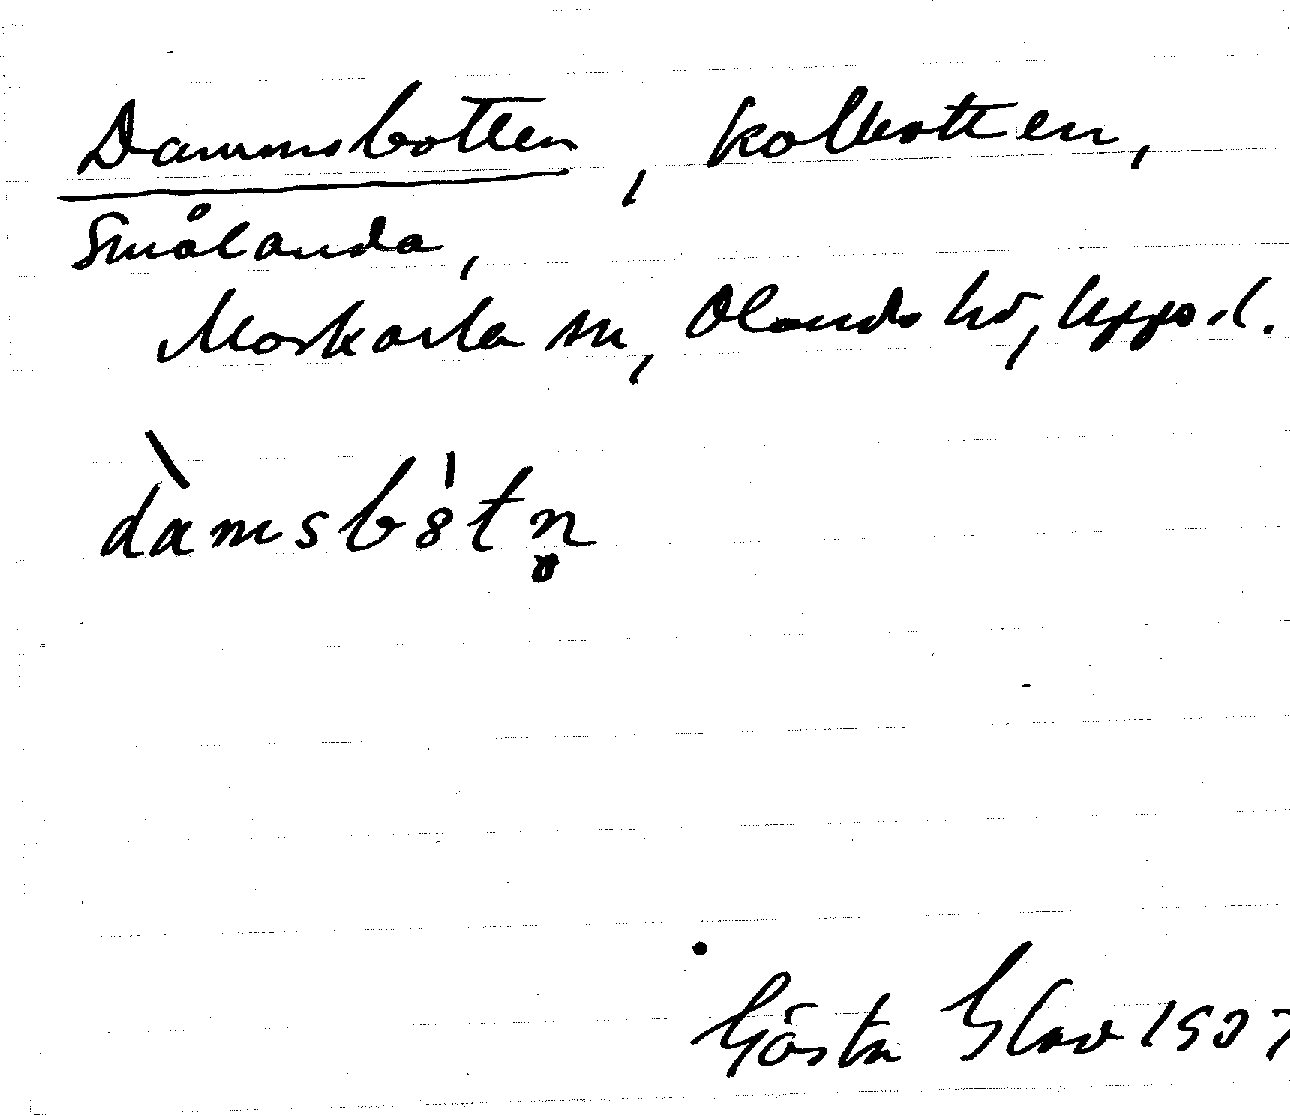 Dammsbotten, kolbotten,
Smålanda,
Morkarla sn, Olands hd, Uppsal.
dàmsb8̍tn̥
Gösta 1937